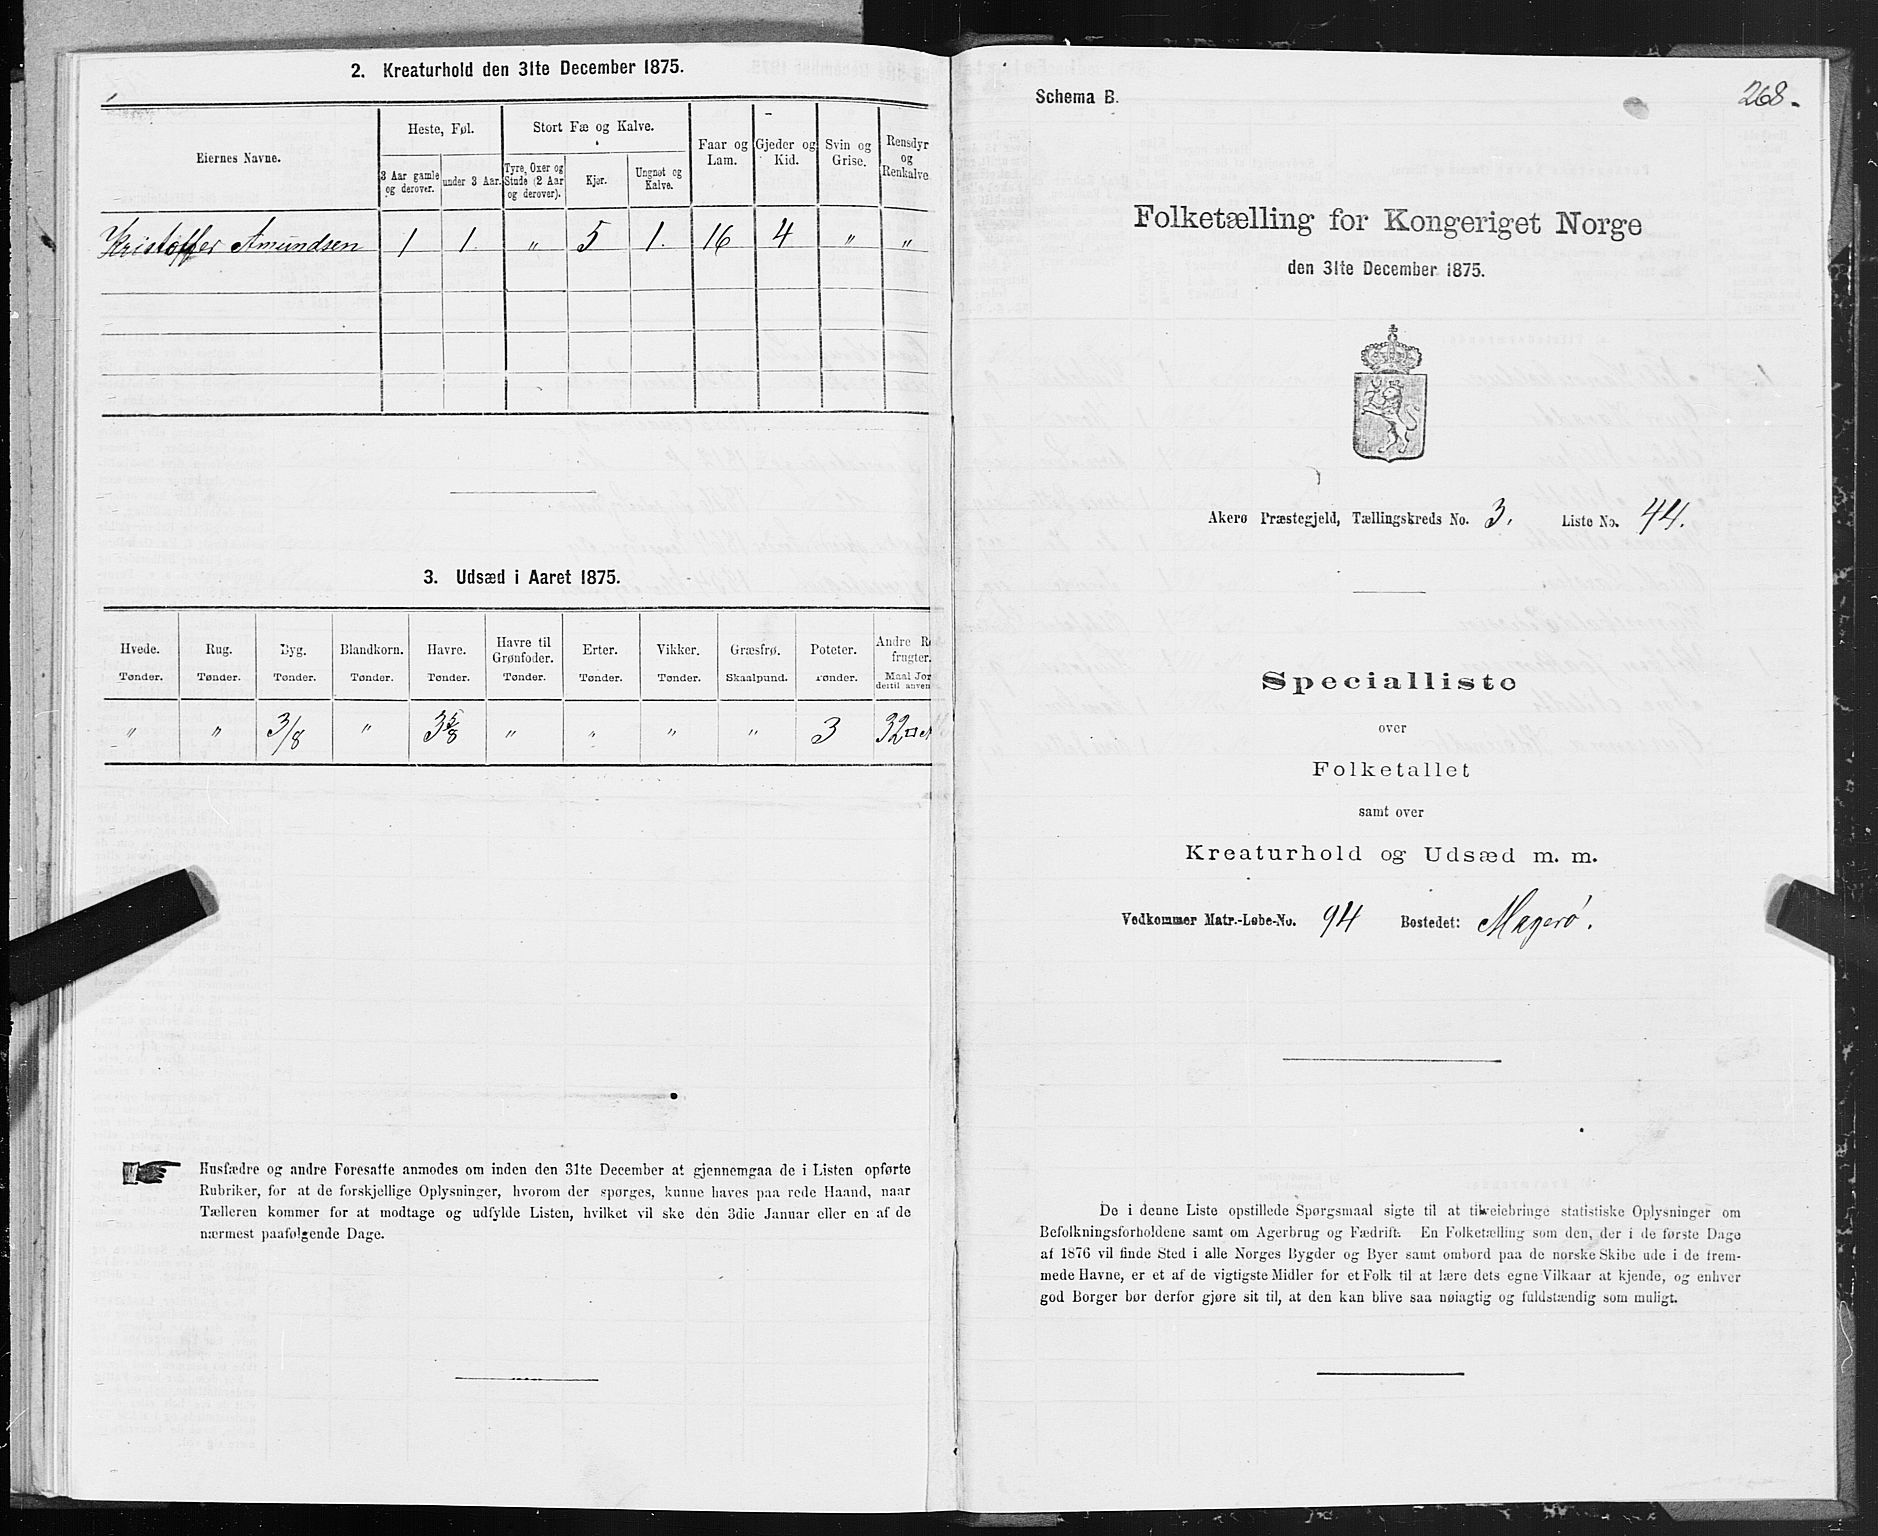 2. Kreaturhold den 31te December 1875.
Eiernes Navne.
Heste, Føl.
Stort Fæ og Kalve.
Faar og Lam.
Gjeder og Kid.
Svin og Grise.
Rensdyr og Renkalve
3 Aar gamle og derover.
under 3 Aar.
Tyre, Oxer og Stude (2 Aar og derover).
Kjør.
Ungnøt og Kalve.
Kristoffer Amundsen 1 1 " 5 1. 16 4 " "
3. Udsæd i Aaret 1875.
Hvede. Rug. Byg. Blandkorn. Havre. Havre til Grønfoder. Erter. Vikker. Græsfrø. Poteter. Andre frugter.
Tønder. Tønder. Tønder. Tønder. Tønder. Tønder. Tønder. Tønder. Skaalpund. Tønder. Maal Jor dertil anven
" " 3/8 " 3 5/8 " " " " 3 32
Husfædre og andre Foresatte anmodes om inden den 31te December at gjennemgaa de i Listen opførte
Rubriker, for at de forskjellige Oplysninger, hvorom der spørges, kunne haves paa rede Haand, naar
Tælleren kommer for at modtage og udfylde Listen, hvilket vil ske den 3die Januar eller en af de
nærmest paafølgende Dage.
Schema B.
268.
Folketælling for Kongeriget Norge
den 31te December 1875.
Akerø Præstegjeld, Tællingskreds No. 3. Liste No. 44.
Specialliste
over
Folketallet
samt over
Kreaturhold og Udsæd m. m.
Vedkommer Matr.-Løbe-No. 94 Bostedet: Magerö.
De i denne Liste opstillede Spørgsmaal sigte til at tilveiebringe statistiske Oplysninger om
Befolkningsforholdene samt om Agerbrug og Fædrift. En Folketælling som den, der i de første Dage
af 1876 vil finde Sted i alle Norges Bygder og Byer samt ombord paa de norske Skibe ude i de frem-
mede Havne, er et af de vigtigste Midler for et Folk til at lære dets egne Vilkaar at kjende, og enhver
god Borger bør derfor gjøre sit til, at den kan blive saa nøiagtig og fuldstændig som muligt.